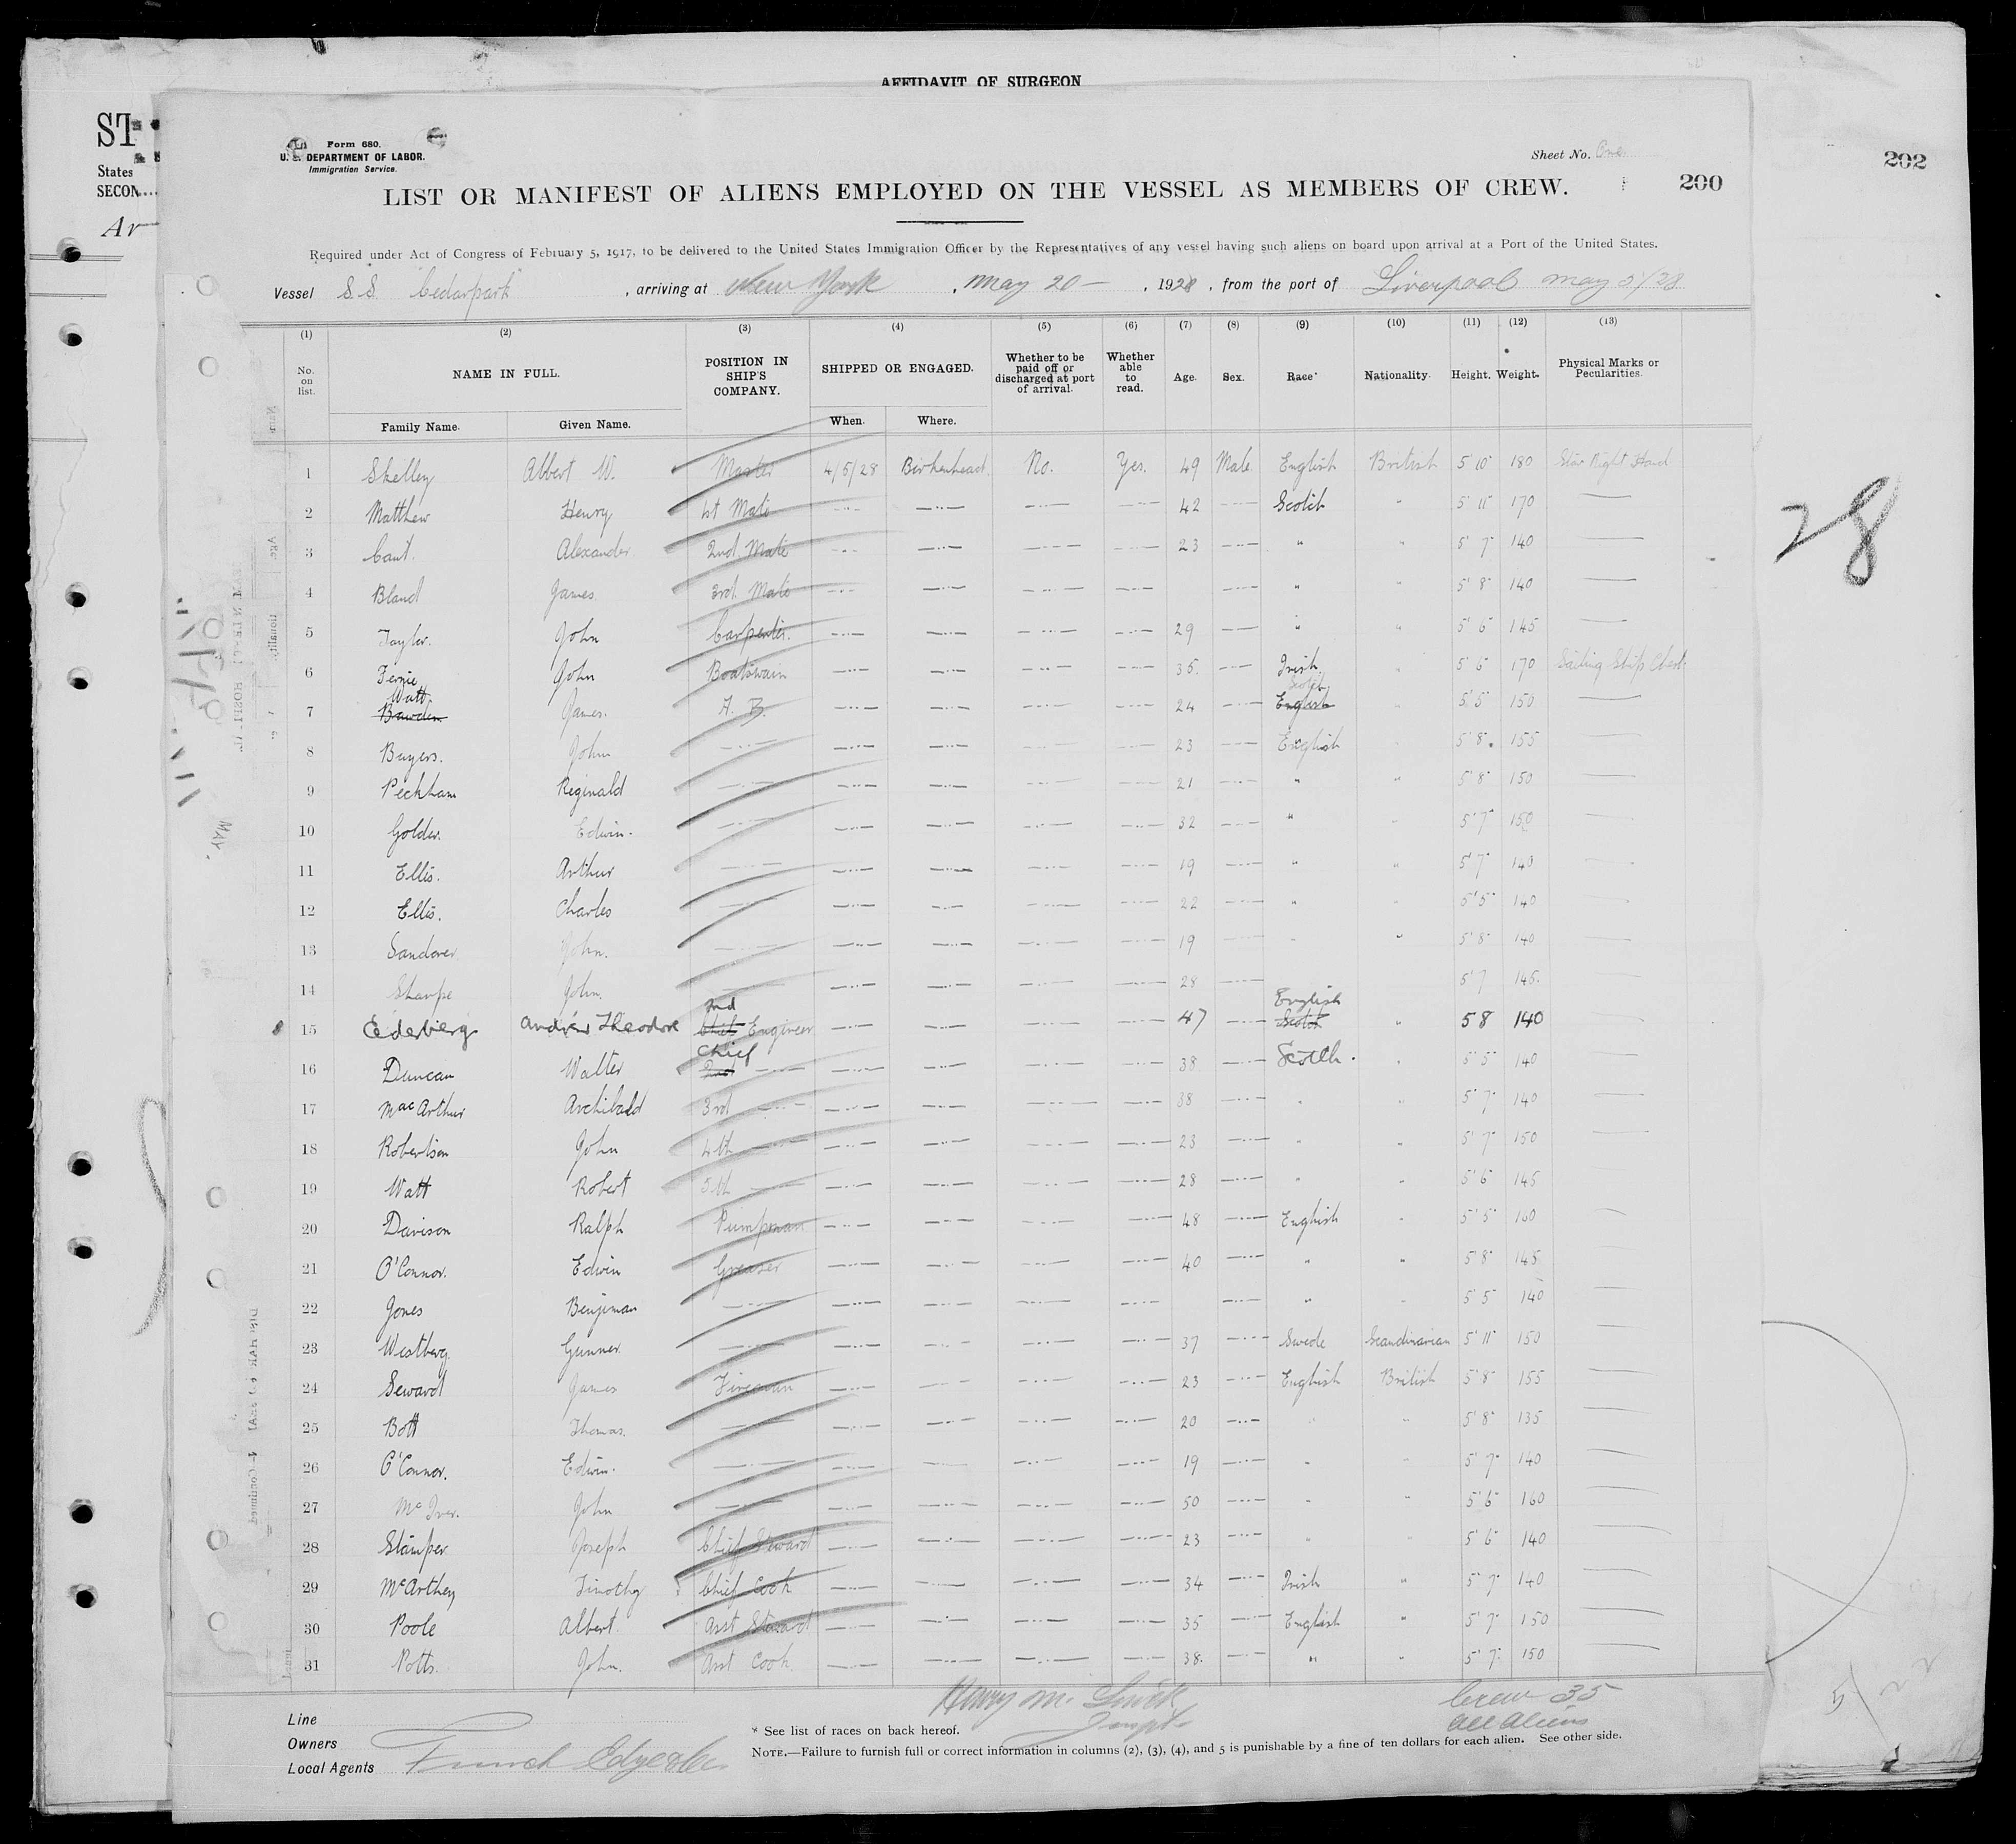 AFFIDAVIT OF SURGEON
ST
States
SECON...
Ar
Form 680.
U. S. DEPARTMENT OF LABOR.
Immigration Service.
Sheet No. One
202
LIST OR MANIFEST OF ALIENS EMPLOYED ON THE VESSEL AS MEMBERS OF CREW.
200
Required under Act of Congress of February 5, 1917, to be delivered to the United States Immigration Officer by the Representatives of any vessel having such aliens on board upon arrival at a Port of the United States.
Vessel S.S. "Cedarpark", arriving at New York, May 20 —, 1928, from the port of Liverpool May 5/28
(1) (2) (3) (4) (5) (6) (7) (8) (9) (10) (11) (12) (13)
No. on list. NAME IN FULL. POSITION IN SHIP'S COMPANY. SHIPPED OR ENGAGED. Whether to be paid off or discharged at port of arrival. Whether able to read. Age. Sex. Race* Nationality. Height. Weight. Physical Marks or Pecularities.
Family Name. Given Name. When. Where.
1 Shelley Albert W. Master 4/5/28 Birkenhead. No. Yes. 49 Male English British 5' 10" 180 Star Right Hand
2 Matthew Henry 1st Mate —··— —··— —··— —··— 42 —··— Scotch " 5' 11" 170 —
3 Cant. Alexander 2nd Mate —··— —··— —··— —··— 23 —··— " " 5' 7" 140 —
4 Bland James 3rd Mate —··— —··— —··— —··— —··— " " 5' 8" 140 —
5 Taylor. John Carpenter. —··— —··— —··— —··— 29 —··— " " 5' 6" 145 —
6 Fernie John Boatswain —··— —··— —··— —··— 35. —··— Irish " 5' 6" 170 Sailing Ship Chest.
Watt Scotch
7 Bawden James. A. B. —··— —··— —··— —··— 24 —··— English " 5' 5" 150 —
8 Buyers. John —··— —··— —··— —··— —··— 23 —··— English 5' 8" 155 —
9 Peckham Reginald —··— —··— —··— —··— —··— 21 —··— " " 5' 8" 150 —
10 Golder. Edwin. —··— —··— —··— —··— —··— 32 —··— " " 5' 7" 150 —
11 Ellis. Arthur —··— —··— —··— —··— —··— 19 —··— " " 5' 7" 140 —
12 Ellis. Charles —··— —··— —··— —··— —··— 22 —··— " " 5' 5" 140 —
13 Sandover John. —··— —··— —··— —··— —··— 19 —··— " " 5' 8" 140 —
14 Sharpe John. —··— —··— —··— —··— —··— 28 —··— 5' 7 145. —
2nd English
15 Ederberg Andrew Theodore Chief Engineer —··— —··— —··— —··— 47 —··— Scotch " 5 8 140
Chief
16 Duncan Walter 2nd —··— —··— —··— —··— —··— 38 —··— Scotch. " 5' 5" 140 —
17 MacArthur Archibald 3rd —··— —··— —··— —··— —··— 38 —··— " " 5' 7" 140 —
18 Robertson John 4th —··— —··— —··— —··— —··— 23 —··— " " 5' 7" 150 —
19 Watt Robert 5th —··— —··— —··— —··— —··— 28 —··— " " 5' 6" 145 —
20 Davison Ralph Pumpman —··— —··— —··— —··— 48 —··— English " 5' 5" 160 —
21 O'Connor. Edwin Greaser —··— —··— —··— —··— 40 —··— " " 5' 8" 145 —
22 Jones Benjiman —··— —··— —··— —··— —··— —··— " " 5' 5" 140 —
23 Westberg. Gunner —··— —··— —··— —··— —··— 37 —··— Swede Scandinavian 5' 11" 150 —
24 Seward James Fireman —··— —··— —··— —··— 23 —··— English British 5' 8" 155 —
25 Bott Thomas. —··— —··— —··— —··— —··— 20 —··— " " 5' 8" 135 —
26 O'Connor. Edwin. —··— —··— —··— —··— —··— 19 —··— " " 5' 7" 140 —
27 McIver. John —··— —··— —··— —··— —··— 50 —··— " " 5' 6" 160 —
28 Stamper Joseph Chief Steward —··— —··— —··— —··— 23 —··— " 5' 6" 140 —
29 McArthey Timothy Chief Cook —··— —··— —··— —··— 34 —··— Irish " 5' 7" 140 —
30 Poole Albert. Asst Steward —··— —··— —··— —··— 35 —··— English " 5' 7" 150 —
31 Potts. John. Asst Cook. —··— —··— —··— —··— 38. —··— " " 5' 7" 150 —
28
Line
Owners
Local Agents Funch Edye
Henry M.
* See list of races on back hereof.
NOTE.—Failure to furnish full or correct information in columns (2), (3), (4), and 5 is punishable by a fine of ten dollars for each alien. See other side.
Crew 35
all aliens
5/22